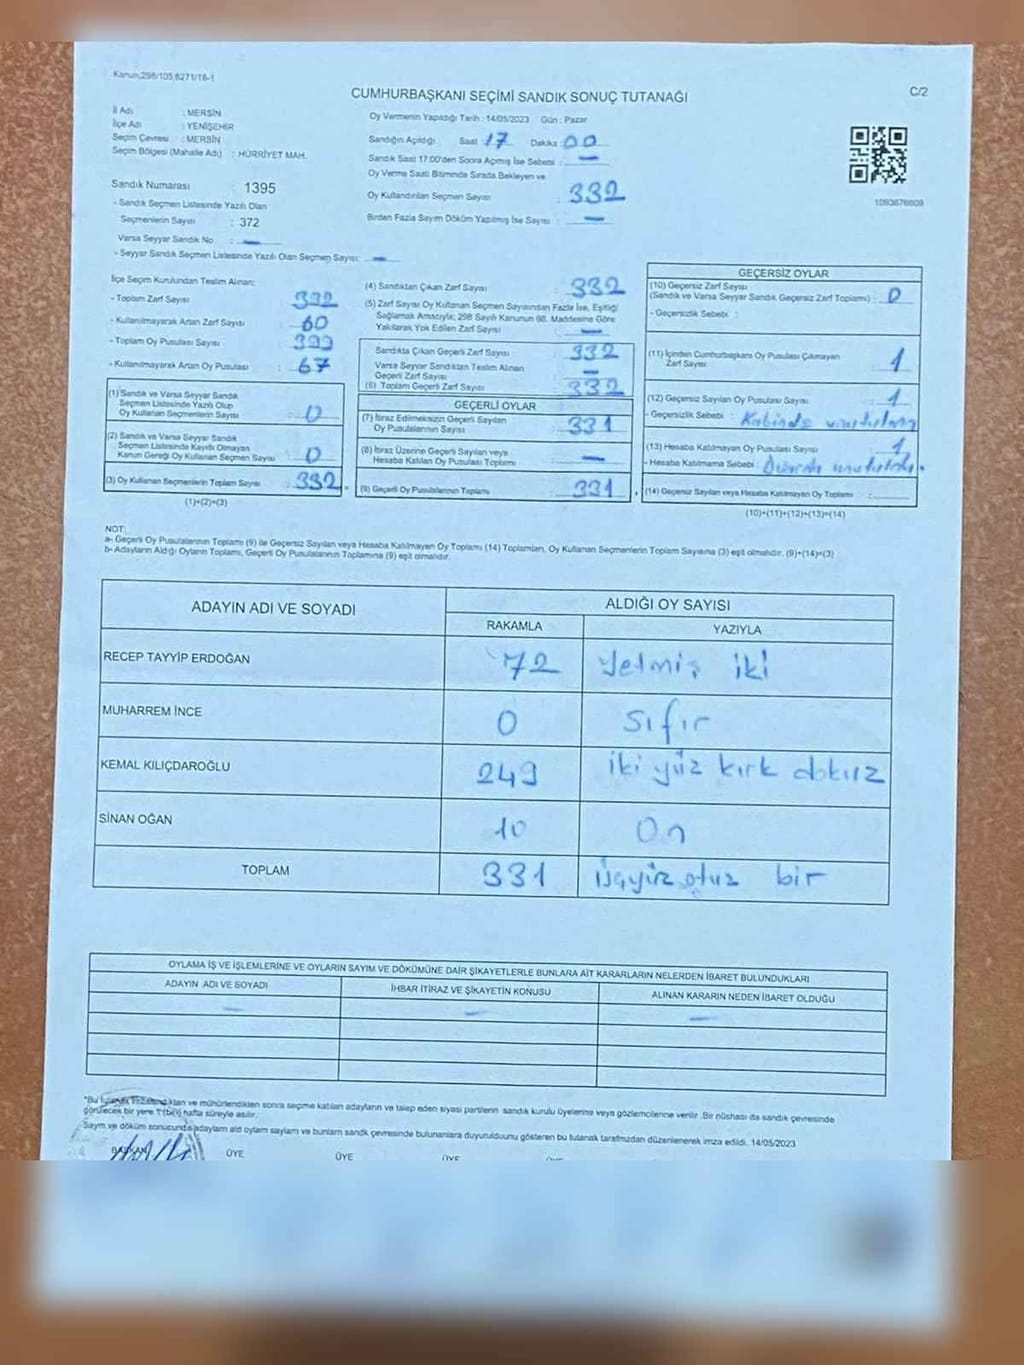 Kanun;298/105,6271/16-1
CUMHURBAŞKANI SEÇİMİ SANDIK SONUÇ TUTANAĞI
C/2
İl Adı : MERSİN
İlçe Adı : YENİŞEHİR
Seçim Çevresi : MERSİN
Seçim Bölgesi (Mahalle Adı) : HÜRRİYET MAH.
Oy Vermenin Yapıldığı Tarih : 14/05/2023 Gün : Pazar
Sandığın Açıldığı Saat 17 Dakika : 00
Sandık Saat 17:00'den Sonra Açılmış İse Sebebi : —
Oy Verme Saati Bitiminde Sırada Bekleyen ve
Oy Kullandırılan Seçmen Sayısı : 332
Birden Fazla Sayım Döküm Yapılmış İse Sayısı : —
1093676609
Sandık Numarası : 1395
- Sandık Seçmen Listesinde Yazılı Olan
Seçmenlerin Sayısı : 372
Varsa Seyyar Sandık No : —
- Seyyar Sandık Seçmen Listesinde Yazılı Olan Seçmen Sayısı: —
İlçe Seçim Kurulundan Teslim Alınan;
- Toplam Zarf Sayısı :
- Kullanılmayarak Artan Zarf Sayısı : 60
- Toplam Oy Pusulası Sayısı :
- Kullanılmayarak Artan Oy Pusulası : 67
(1) Sandık ve Varsa Seyyar Sandık
Seçmen Listesinde Yazılı Olup
Oy Kullanan Seçmenlerin Sayısı : 0
(2) Sandık ve Varsa Seyyar Sandık
Seçmen Listesinde Kaydı Olmayan
Kanun Gereği Oy Kullanan Seçmen Sayısı : 0
(3) Oy Kullanan Seçmenlerin Toplam Sayısı : 332
(1)+(2)=(3)
(4) Sandıktan Çıkan Zarf Sayısı : 332
(5) Zarf Sayısı Oy Kullanan Seçmen Sayısından Fazla İse, Eşitliği
Sağlamak Amacıyla; 298 Sayılı Kanunun 98. Maddesine Göre
Yakılarak Yok Edilen Zarf Sayısı : —
Sandıkta Çıkan Geçerli Zarf Sayısı : 332
Varsa Seyyar Sandıktan Teslim Alınan
Geçerli Zarf Sayısı : —
(6) Toplam Geçerli Zarf Sayısı : 332
GEÇERLİ OYLAR
(7) İtiraz Edilmeksizin Geçerli Sayılan
Oy Pusulalarının Sayısı : 331
(8) İtiraz Üzerine Geçerli Sayılan veya
Hesaba Katılan Oy Pusulası Toplamı : —
(9) Geçerli Oy Pusulalarının Toplamı : 331
GEÇERSİZ OYLAR
(10) Geçersiz Zarf Sayısı
(Sandık ve Varsa Seyyar Sandık Geçersiz Zarf Toplamı) : 0
- Geçersizlik Sebebi :
(11) İçinden Cumhurbaşkanı Oy Pusulası Çıkmayan
Zarf Sayısı : 1
(12) Geçersiz Sayılan Oy Pusulası Sayısı : 1
- Geçersizlik Sebebi : Kabinde
(13) Hesaba Katılmayan Oy Pusulası Sayısı : 1
- Hesaba Katılmama Sebebi :
(14) Geçersiz Sayılan veya Hesaba Katılmayan Oy Toplamı :
(10)+(11)+(12)+(13)=(14)
NOT:
a- Geçerli Oy Pusulalarının Toplamı (9) ile Geçersiz Sayılan veya Hesaba Katılmayan Oy Toplamı (14) Toplamları, Oy Kullanan Seçmenlerin Toplam Sayısına (3) eşit olmalıdır. (9)+(14)=(3)
b- Adayların Aldığı Oyların Toplamı, Geçerli Oy Pusulalarının Toplamına (9) eşit olmalıdır.
ADAYIN ADI VE SOYADI
ALDIĞI OY SAYISI
RAKAMLA YAZIYLA
RECEP TAYYİP ERDOĞAN 72 Yetmiş iki
MUHARREM İNCE 0 Sıfır
KEMAL KILIÇDAROĞLU 249 iki yüz kırk dokuz
SİNAN OĞAN 10 On
TOPLAM 331 üçyüz otuz bir
OYLAMA İŞ VE İŞLEMLERİNE VE OYLARIN SAYIM VE DÖKÜMÜNE DAİR ŞİKAYETLERLE BUNLARA AİT KARARLARIN NELERDEN İBARET BULUNDUKLARI
ADAYIN ADI VE SOYADI İHBAR İTİRAZ VE ŞİKAYETİN KONUSU ALINAN KARARIN NEDEN İBARET OLDUĞU
— — —
*Bu tutanak imzalandıktan ve mühürlendikten sonra seçime katılan adayların ve talep eden siyasi partilerin sandık kurulu üyelerine veya gözlemcilerine verilir. Bir nüshası da sandık çevresinde
görülecek bir yere 1 (bir) hafta süreyle asılır.
Sayım ve döküm sonucunda adayların ald oyların sayıları ve bunların sandık çevresinde bulunanlara duyurulduğunu gösteren bu tutanak tarafımızdan düzenlenerek imza edildi. 14/05/2023
BAŞKAN ÜYE ÜYE ÜYE